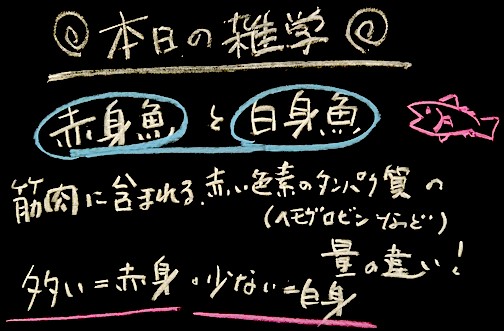 本日の雑学
赤身魚と白身魚
筋肉に含まれる、赤い色素のタンパク質の
(ヘモグロビンなど)
量の違い!
多い=赤身・少ない=白身